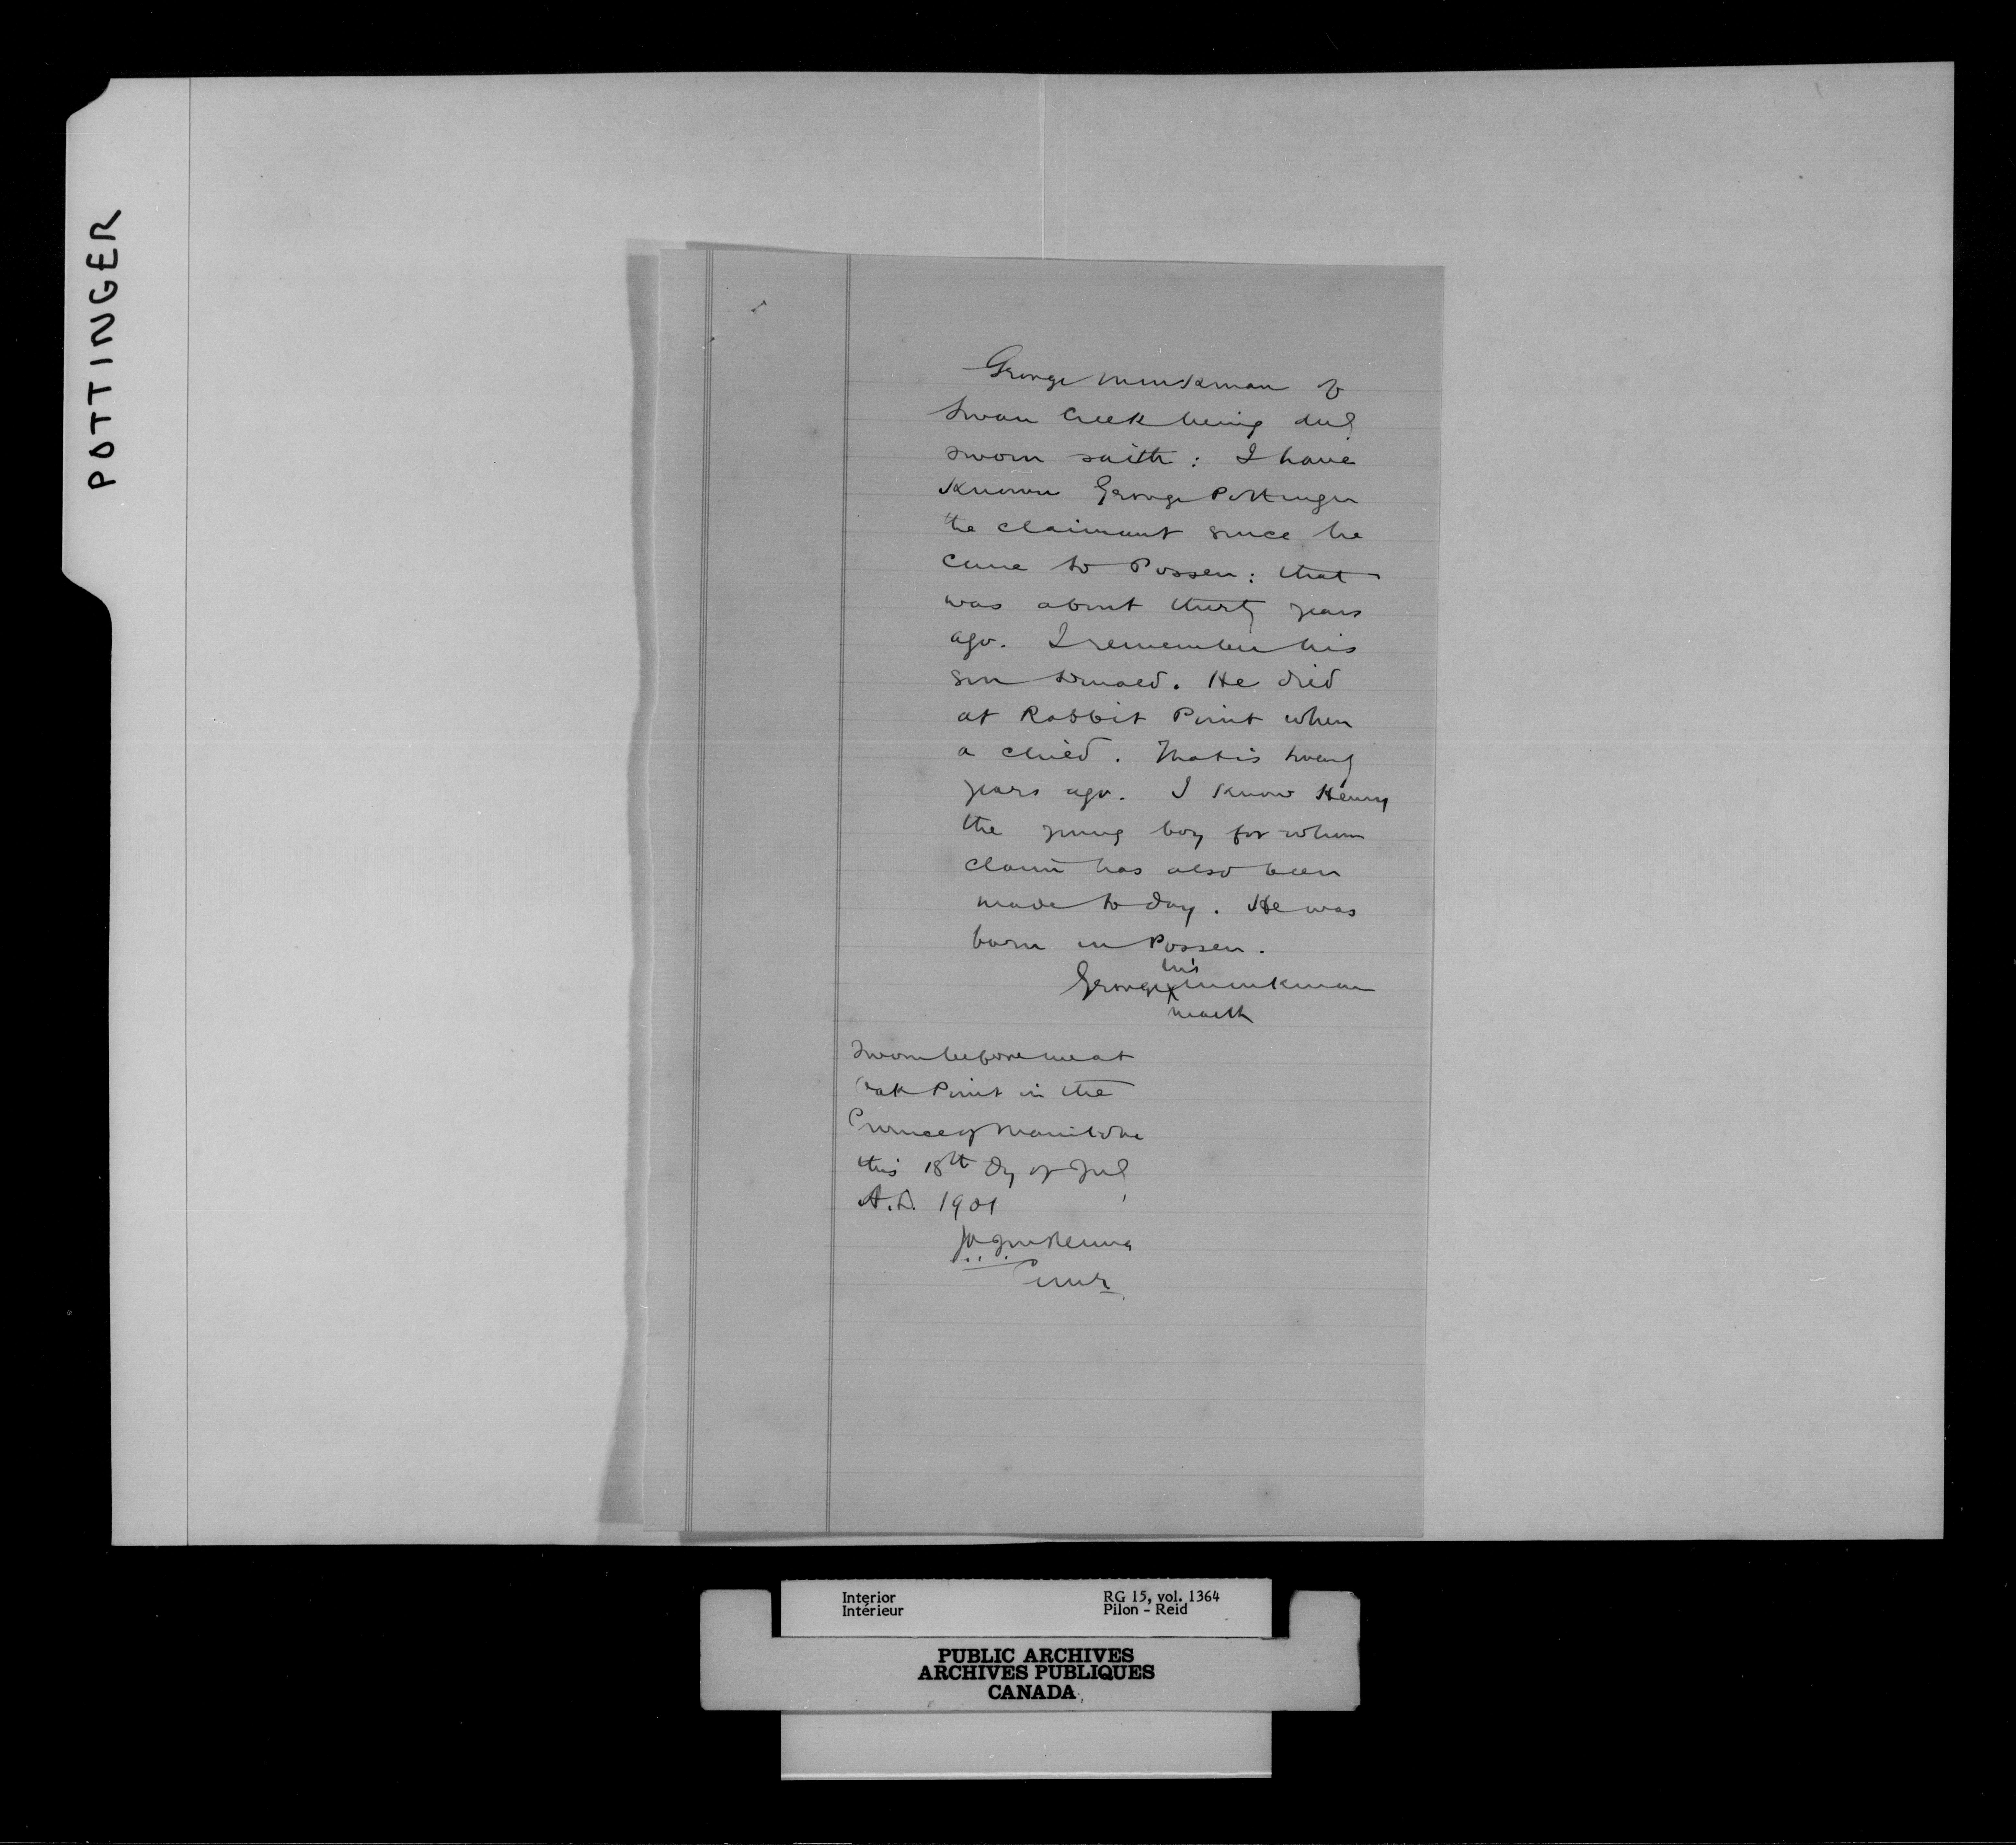 POTTINGER
George Minkman of
Swan Creek being duly
sworn saith: I have
known George Pottinger
the claimant since he
came to Possen: that
was about thirty years
ago. I remember his
son Donald. He died
at Rabbit Point when
a child. That is twenty
years ago. I know Henry
the young boy for whom
claim has also been
made to day. He was
born in Possen.
his
George X Minkman
mark
Sworn before me at
Oak Point in the
Province of Manitoba
this 18th Day of July
A.D. 1901
Interior
Intérieur
RG 15, vol. 1364
Pilon - Reid
PUBLIC ARCHIVES
ARCHIVES PUBLIQUES
CANADA